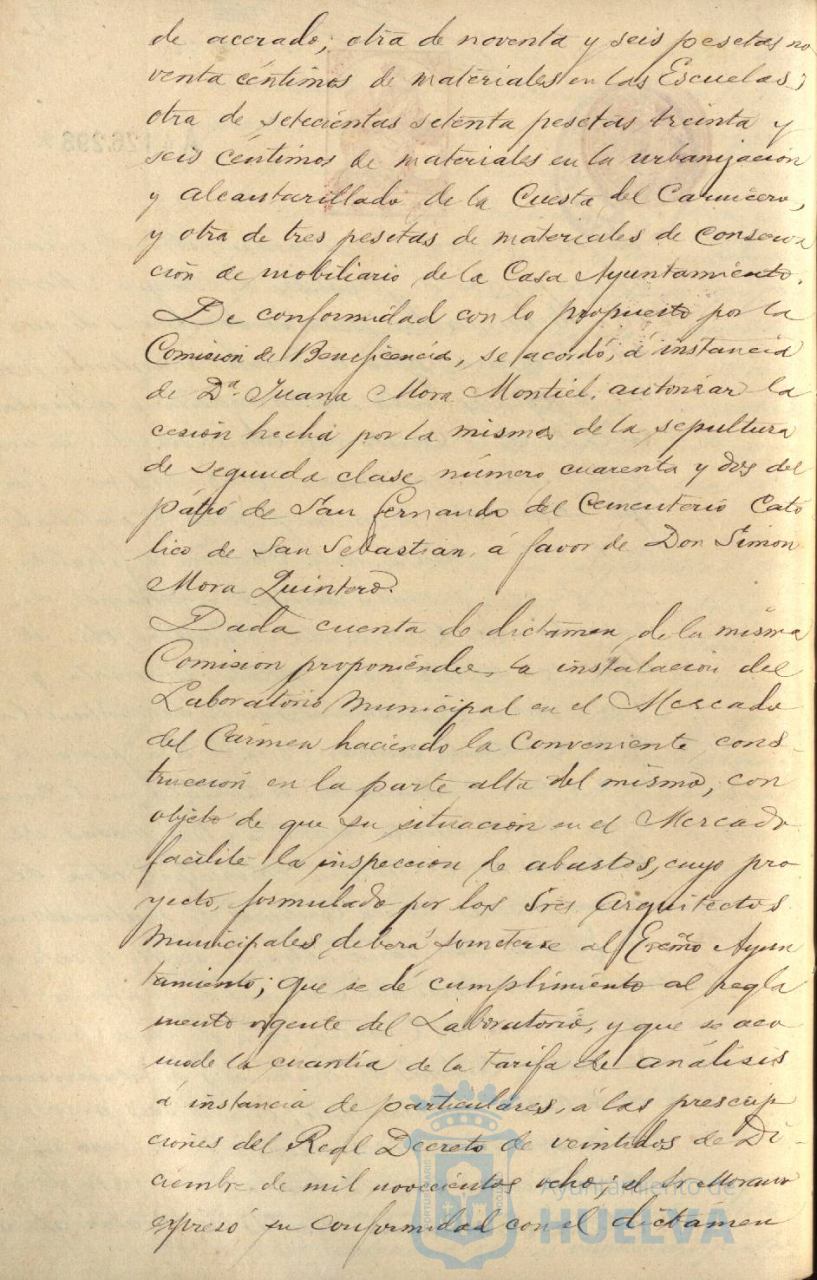 de acerado; otra de noventa y seis pesetas no
venta céntimos de materiales en las Escuelas;
otra de setecientas setenta pesetas treinta y
seis céntimos de materiales en la urbanización
y alcantarillado de la Cuesta del Carnicero,
y otra de tres pesetas de materiales de conserva
ción de mobiliario de la Casa Ayuntamiento.
De conformidad con lo propuesto por la
Comisión de Beneficencia, se acordó, á instancia
de Dª. Juana Mora Montiel, autorizar la
cesión hecha por la misma de la sepultura
de segunda clase número cuarenta y dos del
patio de San Fernando del Cementerio Cató
lico de San Sebastian, á favor de Don Simon
Mora Quintero.
Dada cuenta de dictamen de la misma
Comisión proponiendo la instalación del
Laboratorio Municipal en el Mercado
del Cármen haciendo la conveniente cons-
trucción en la parte alta del mismo, con
objeto de que su situación en el Mercado
facilite la inspección de abastos, cuyo pro
yecto, formulado por los Sres Arquitectos
Municipales deberá someterse al Excmo Ayun
tamiento; que se dé cumplimiento al regla
mento vigente del Laboratorio, y que se aco
mode la cuantía de la tarifa de análisis
á instancia de particulares, á las prescrip
ciones del Real Decreto de veintidos de Di-
ciembre de mil novecientos ocho; el Sr Morano
expresó su conformidad con el dictámen
Ayuntamiento de
HUELVA
126.298